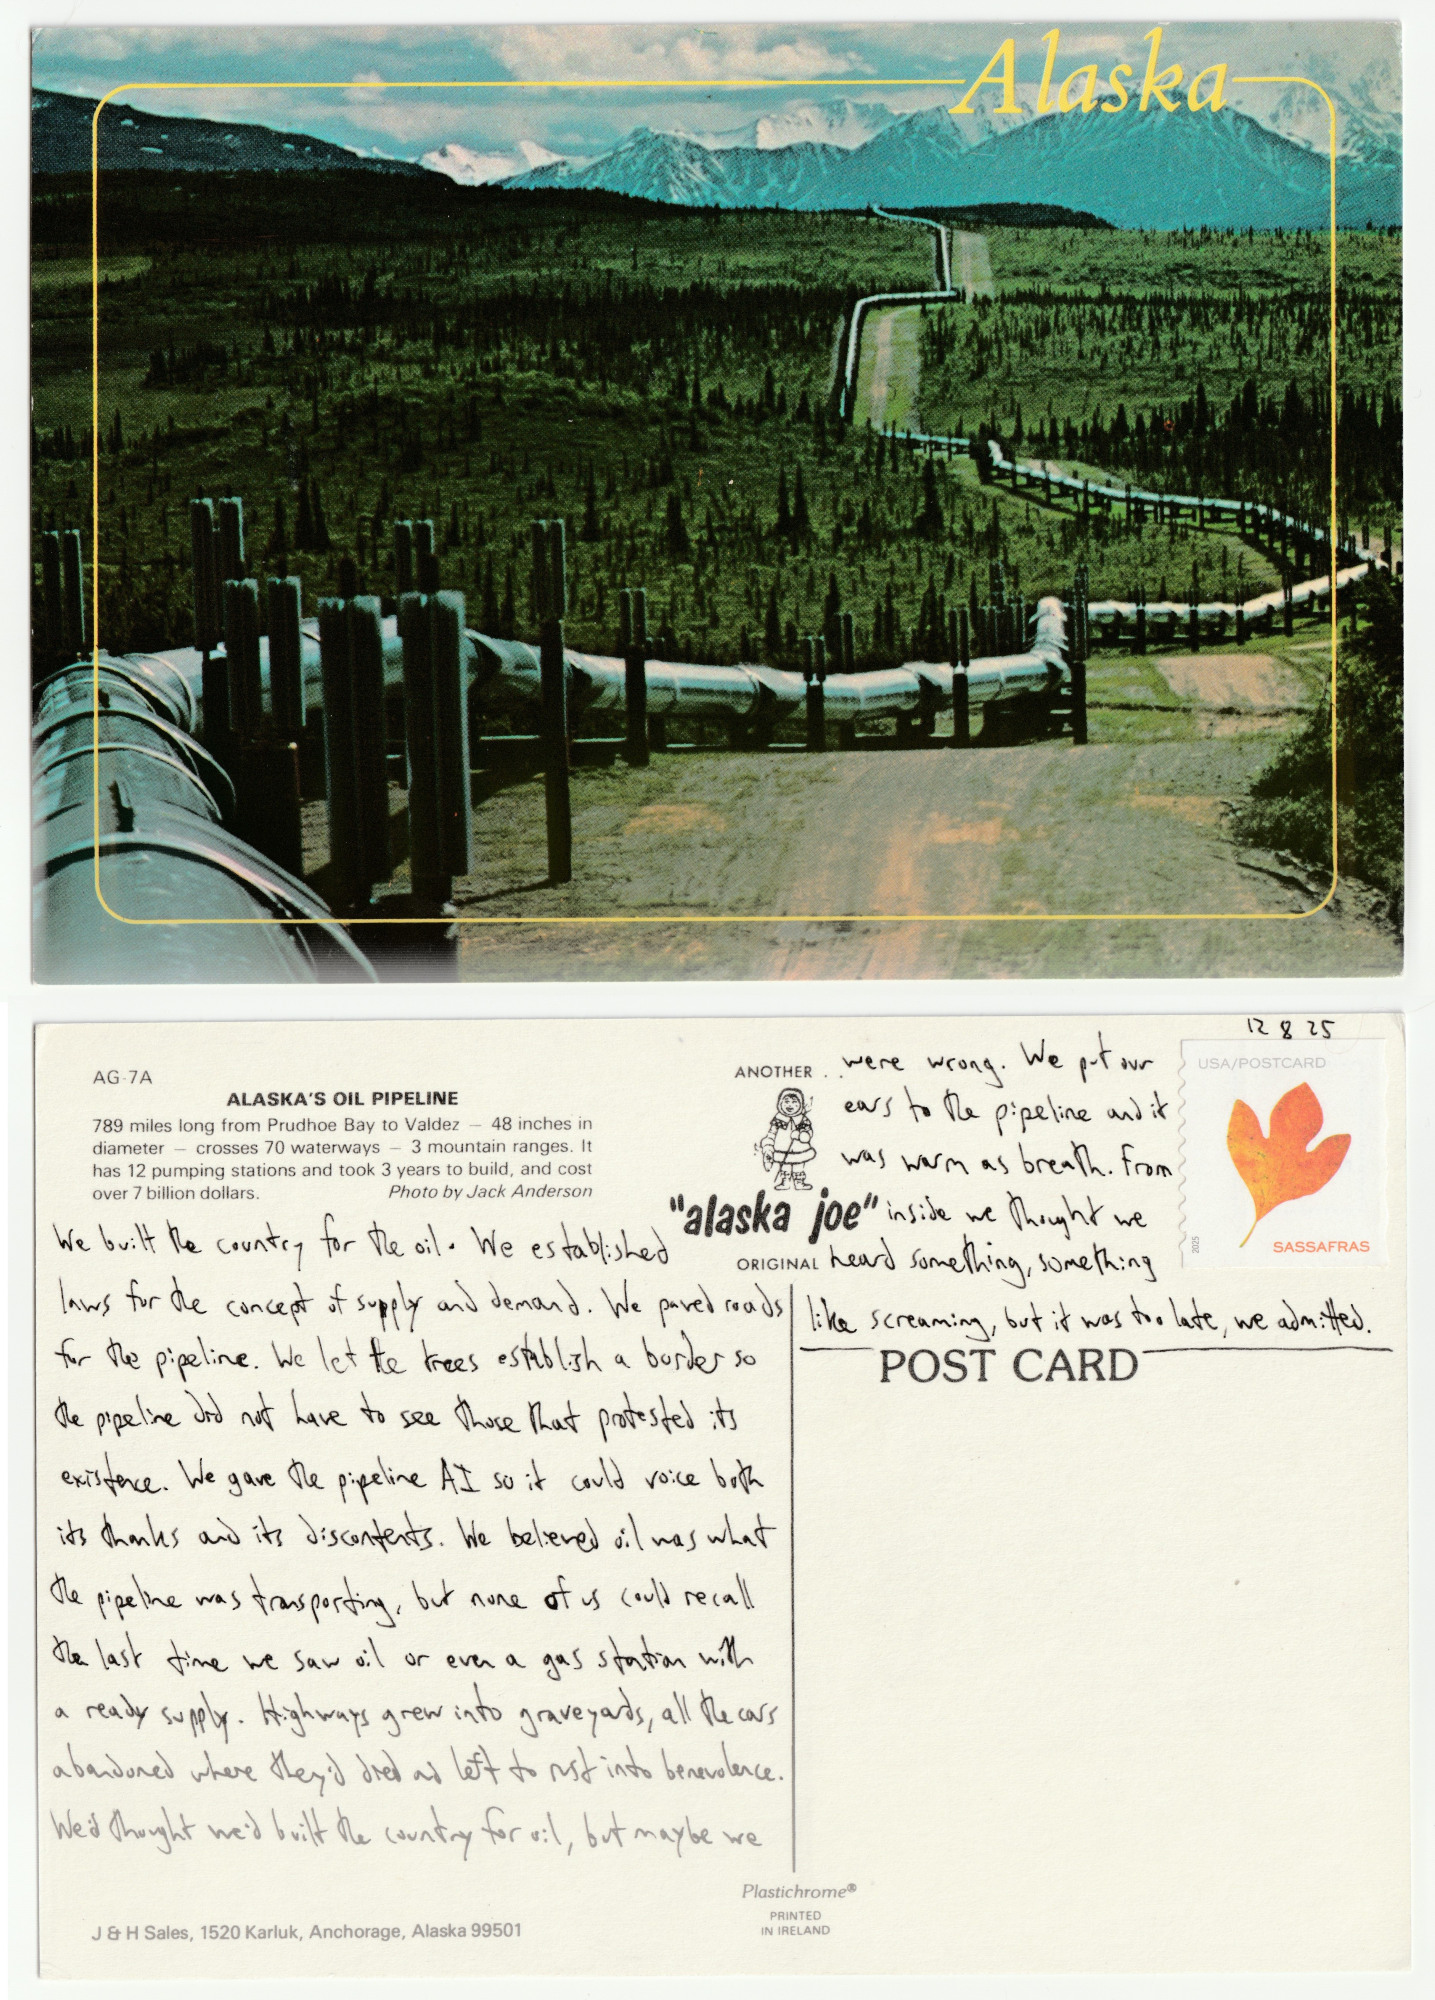 Alaska
AG-7A
ALASKA'S OIL PIPELINE
789 miles long from Prudhoe Bay to Valdez — 48 inches in
diameter — crosses 70 waterways — 3 mountain ranges. It
has 12 pumping stations and took 3 years to build, and cost
over 7 billion dollars.
Photo by Jack Anderson
We built the country for the oil. We established
laws for the concept of supply and demand. We paved roads
for the pipeline. We let the trees establish a border so
the pipeline did not have to see those that protested its
existence. We gave the pipeline AI so it could voice both
its thanks and its discontents. We believed oil was what
the pipeline was transporting, but none of us could recall
the last time we saw oil or even a gas station with
a ready supply. Highways grew into graveyards, all the cars
abandoned where they'd died and left to rust into benevolence.
We'd thought we'd built the country for oil, but maybe we
were wrong. We put our
ears to the pipeline and it
was warm as breath. From
inside we thought we
heard something, something
like screaming, but it was too late, we admitted.
ANOTHER . .
"alaska joe"
ORIGINAL
12 8 25
USA/POSTCARD
2025
SASSAFRAS
POST CARD
Plastichrome®
PRINTED
IN IRELAND
J & H Sales, 1520 Karluk, Anchorage, Alaska 99501